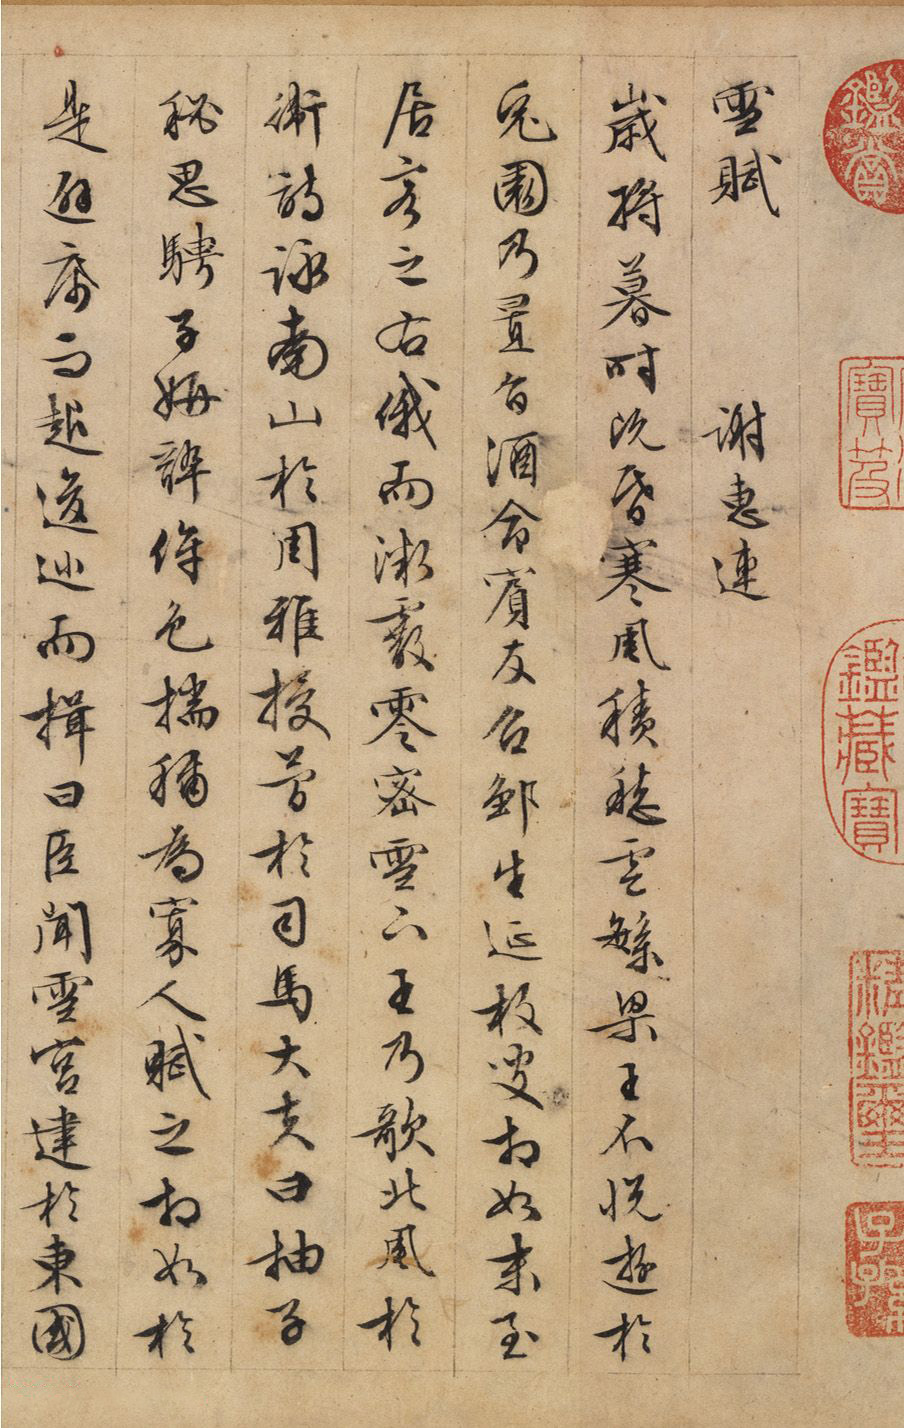 鑑賞
寶笈
鑑藏寶
精鑑璽
子孫
雪賦 謝惠連
歲將暮時既昏寒風積愁雲繁梁王不悅遊於
兔園乃置旨酒命賓友召鄒生延枚叟相如末至
居客之右俄而微霰零密雪下王乃歌北風於
衛詩詠南山於周雅授簡於司馬大夫曰抽子
秘思騁子妍辭侔色揣稱為寡人賦之相如於
是避席而起逡巡而揖曰臣聞雪宮建於東國